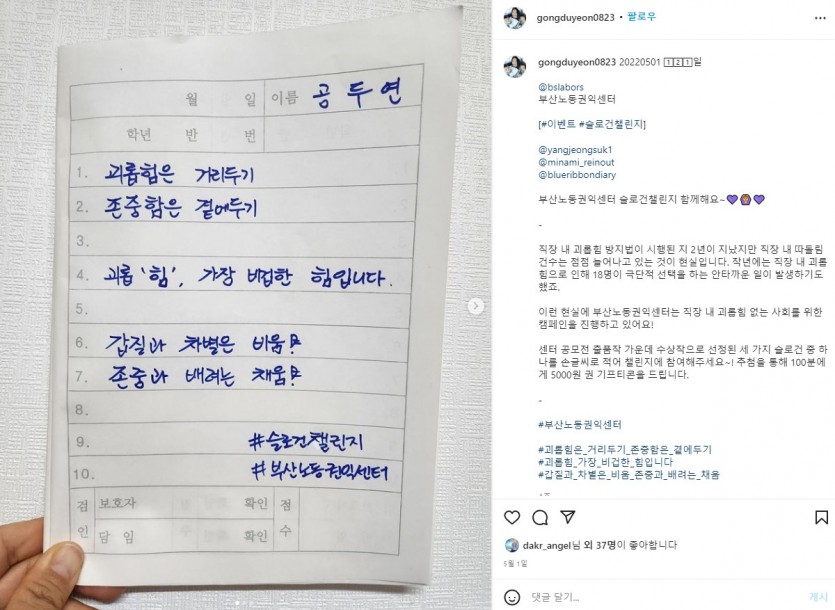 월 일 이름 공두연
학년 반 번
1. 괴롭힘은 거리두기
2. 존중함은 곁에두기
3.
4. 괴롭'힘', 가장 비겁한 힘입니다.
5.
6. 갑질과 차별은 비움!
7. 존중과 배려는 채움!
8.
9. #슬로건챌린지
10. #부산노동권익센터
검인 보호자 확인 점수
담임 확인
gongduyeon0823 • 팔로우
gongduyeon0823 20220501 1️⃣2️⃣1️⃣일
@bslabors
부산노동권익센터
[#이벤트 #슬로건챌린지]
@yangjeongsuk1
@minami_reinout
@blueribbondiary
부산노동권익센터 슬로건챌린지 함께해요~💜🙆💜
-
직장 내 괴롭힘 방지법이 시행된 지 2년이 지났지만 직장 내 따돌림
건수는 점점 늘어나고 있는 것이 현실입니다. 작년에는 직장 내 괴롭
힘으로 인해 18명이 극단적 선택을 하는 안타까운 일이 발생하기도
했죠.
이런 현실에 부산노동권익센터는 직장 내 괴롭힘 없는 사회를 위한
캠페인을 진행하고 있어요!
센터 공모전 출품작 가운데 수상작으로 선정된 세 가지 슬로건 중 하
나를 손글씨로 적어 챌린지에 참여해주세요~! 추첨을 통해 100분에
게 5000원 권 기프티콘을 드립니다.
-
#부산노동권익센터
#괴롭힘은_거리두기_존중함은_곁에두기
#괴롭힘_가장_비겁한_힘입니다
#갑질과_차별은_비움_존중과_배려는_채움
dakr_angel님 외 37명이 좋아합니다
5월 1일
댓글 달기...
게시